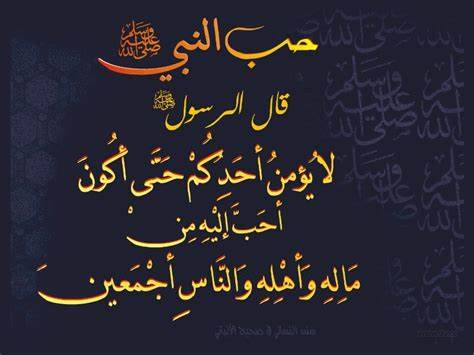 حب النبي ﷺ
قال الرسول ﷺ
لا يؤمنُ أحَدِكُمْ حَتَّى أكُونَ
أحَبَّ إليْهِ مِنْ
مَالِهِ وَأهْلِهِ وَالنَّاسِ أجْمَعينَ